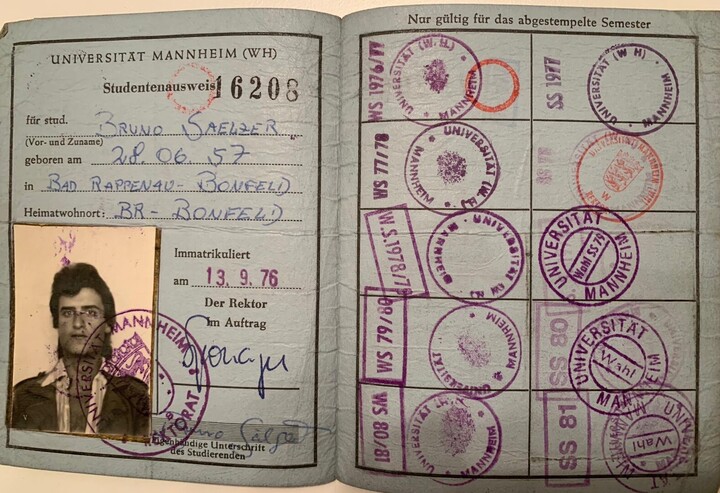 UNIVERSITÄT MANNHEIM (WH)
Studentenausweis 16208
für stud. BRUNO SAELZER
(Vor- und Zuname)
geboren am 28.06 57
in BAD RAPPENAU-BONFELD
Heimatwohnort: BR-BONFELD
Immatrikuliert
am 13.9.76
Der Rektor
im Auftrag
MANNHEIM
UNIVERSITÄT
Eigenhändige Unterschrift
des Studierenden
Nur gültig für das abgestempelte Semester
WS 1976/77
UNIVERSITÄT (W.H.) MANNHEIM
SS 1977
UNIVERSITÄT (WH) MANNHEIM
WS 77/78
UNIVERSITÄT (WH) MANNHEIM
SS 78
W.S.1978/79
UNIVERSITÄT (WH) MANNHEIM
UNIVERSITÄT MANNHEIM
Wahl SS 79
WS 79/80
UNIVERSITÄT MANNHEIM
SS 80
UNIVERSITÄT MANNHEIM
Wahl
WS 80/81
UNIVERSITÄT (WH) MANNHEIM
SS 81
Wahl